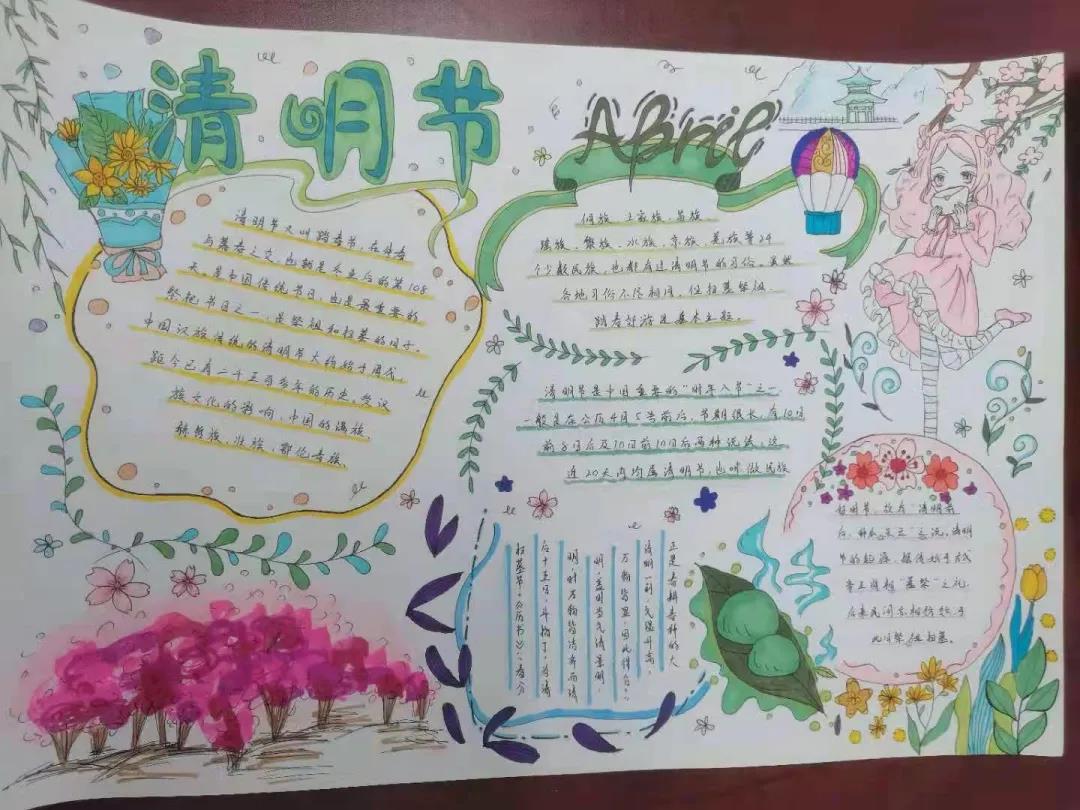 清明节
April
清明节又叫踏春节，在仲春
与暮春之交，也就是冬至后的第108
天。是中国传统节日，也是最重要的
祭祀节日之一，是祭祖和扫墓的日子。
中国汉族传统的清明节大约始于周代，
距今已有二千五百多年的历史。受汉
族文化的影响，中国的满族、
赫哲族、壮族、鄂伦春族、
侗族、土家族、苗族、
瑶族、黎族、水族、京族、羌族等24
个少数民族，也都有过清明节的习俗。虽然
各地习俗不尽相同，但扫墓祭祖、
踏春郊游是基本主题。
清明节是中国重要的“时年八节”之一，
一般是在公历4月5号前后，节期很长，有10日
前8日后及10日前10日后两种说法，这
近20天内均属清明节，也叫做民族
扫墓节。《历书》：“春分
后十五日，斗指丁，为清
明，时万物皆洁齐而清
明，盖时当气清景明，
万物皆显，因此得名。”
清明一到，气温升高，
正是春耕春种的大
好时节，故有“清明前
后，种
之说。清明
节的起源，据传始于古代
帝王将相“墓祭”之礼，
后来民间亦相仿效，于
此日祭祖扫墓。